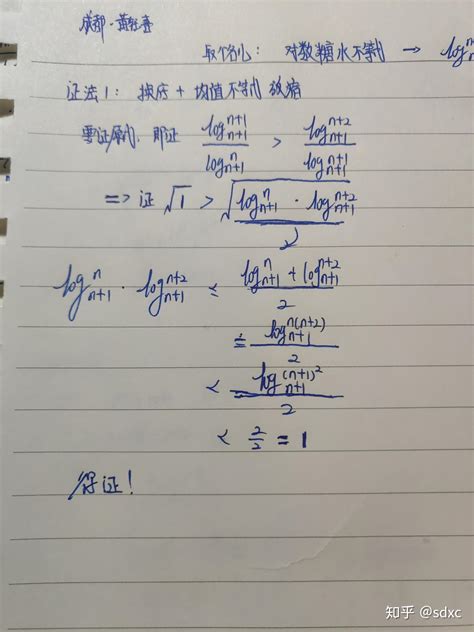 成都·黄红春
取个名儿：对数糖水不等式 → log
证法1：换底 + 均值不等式 放缩
要证原式，即证 log_{n+1}^{n+1} / log_{n+1}^{n} > log_{n+1}^{n+2} / log_{n+1}^{n+1}
=> 证 √1 > √(log_{n+1}^{n} · log_{n+1}^{n+2})
log_{n+1}^{n} · log_{n+1}^{n+2} ≤ (log_{n+1}^{n} + log_{n+1}^{n+2}) / 2
≤ log_{n+1}^{n(n+2)} / 2
< log_{n+1}^{(n+1)^2} / 2
< 2/2 = 1
得证！
知乎 @sdxc